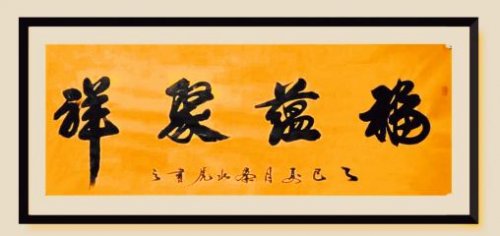 福蕴聚祥
乙巳夏月